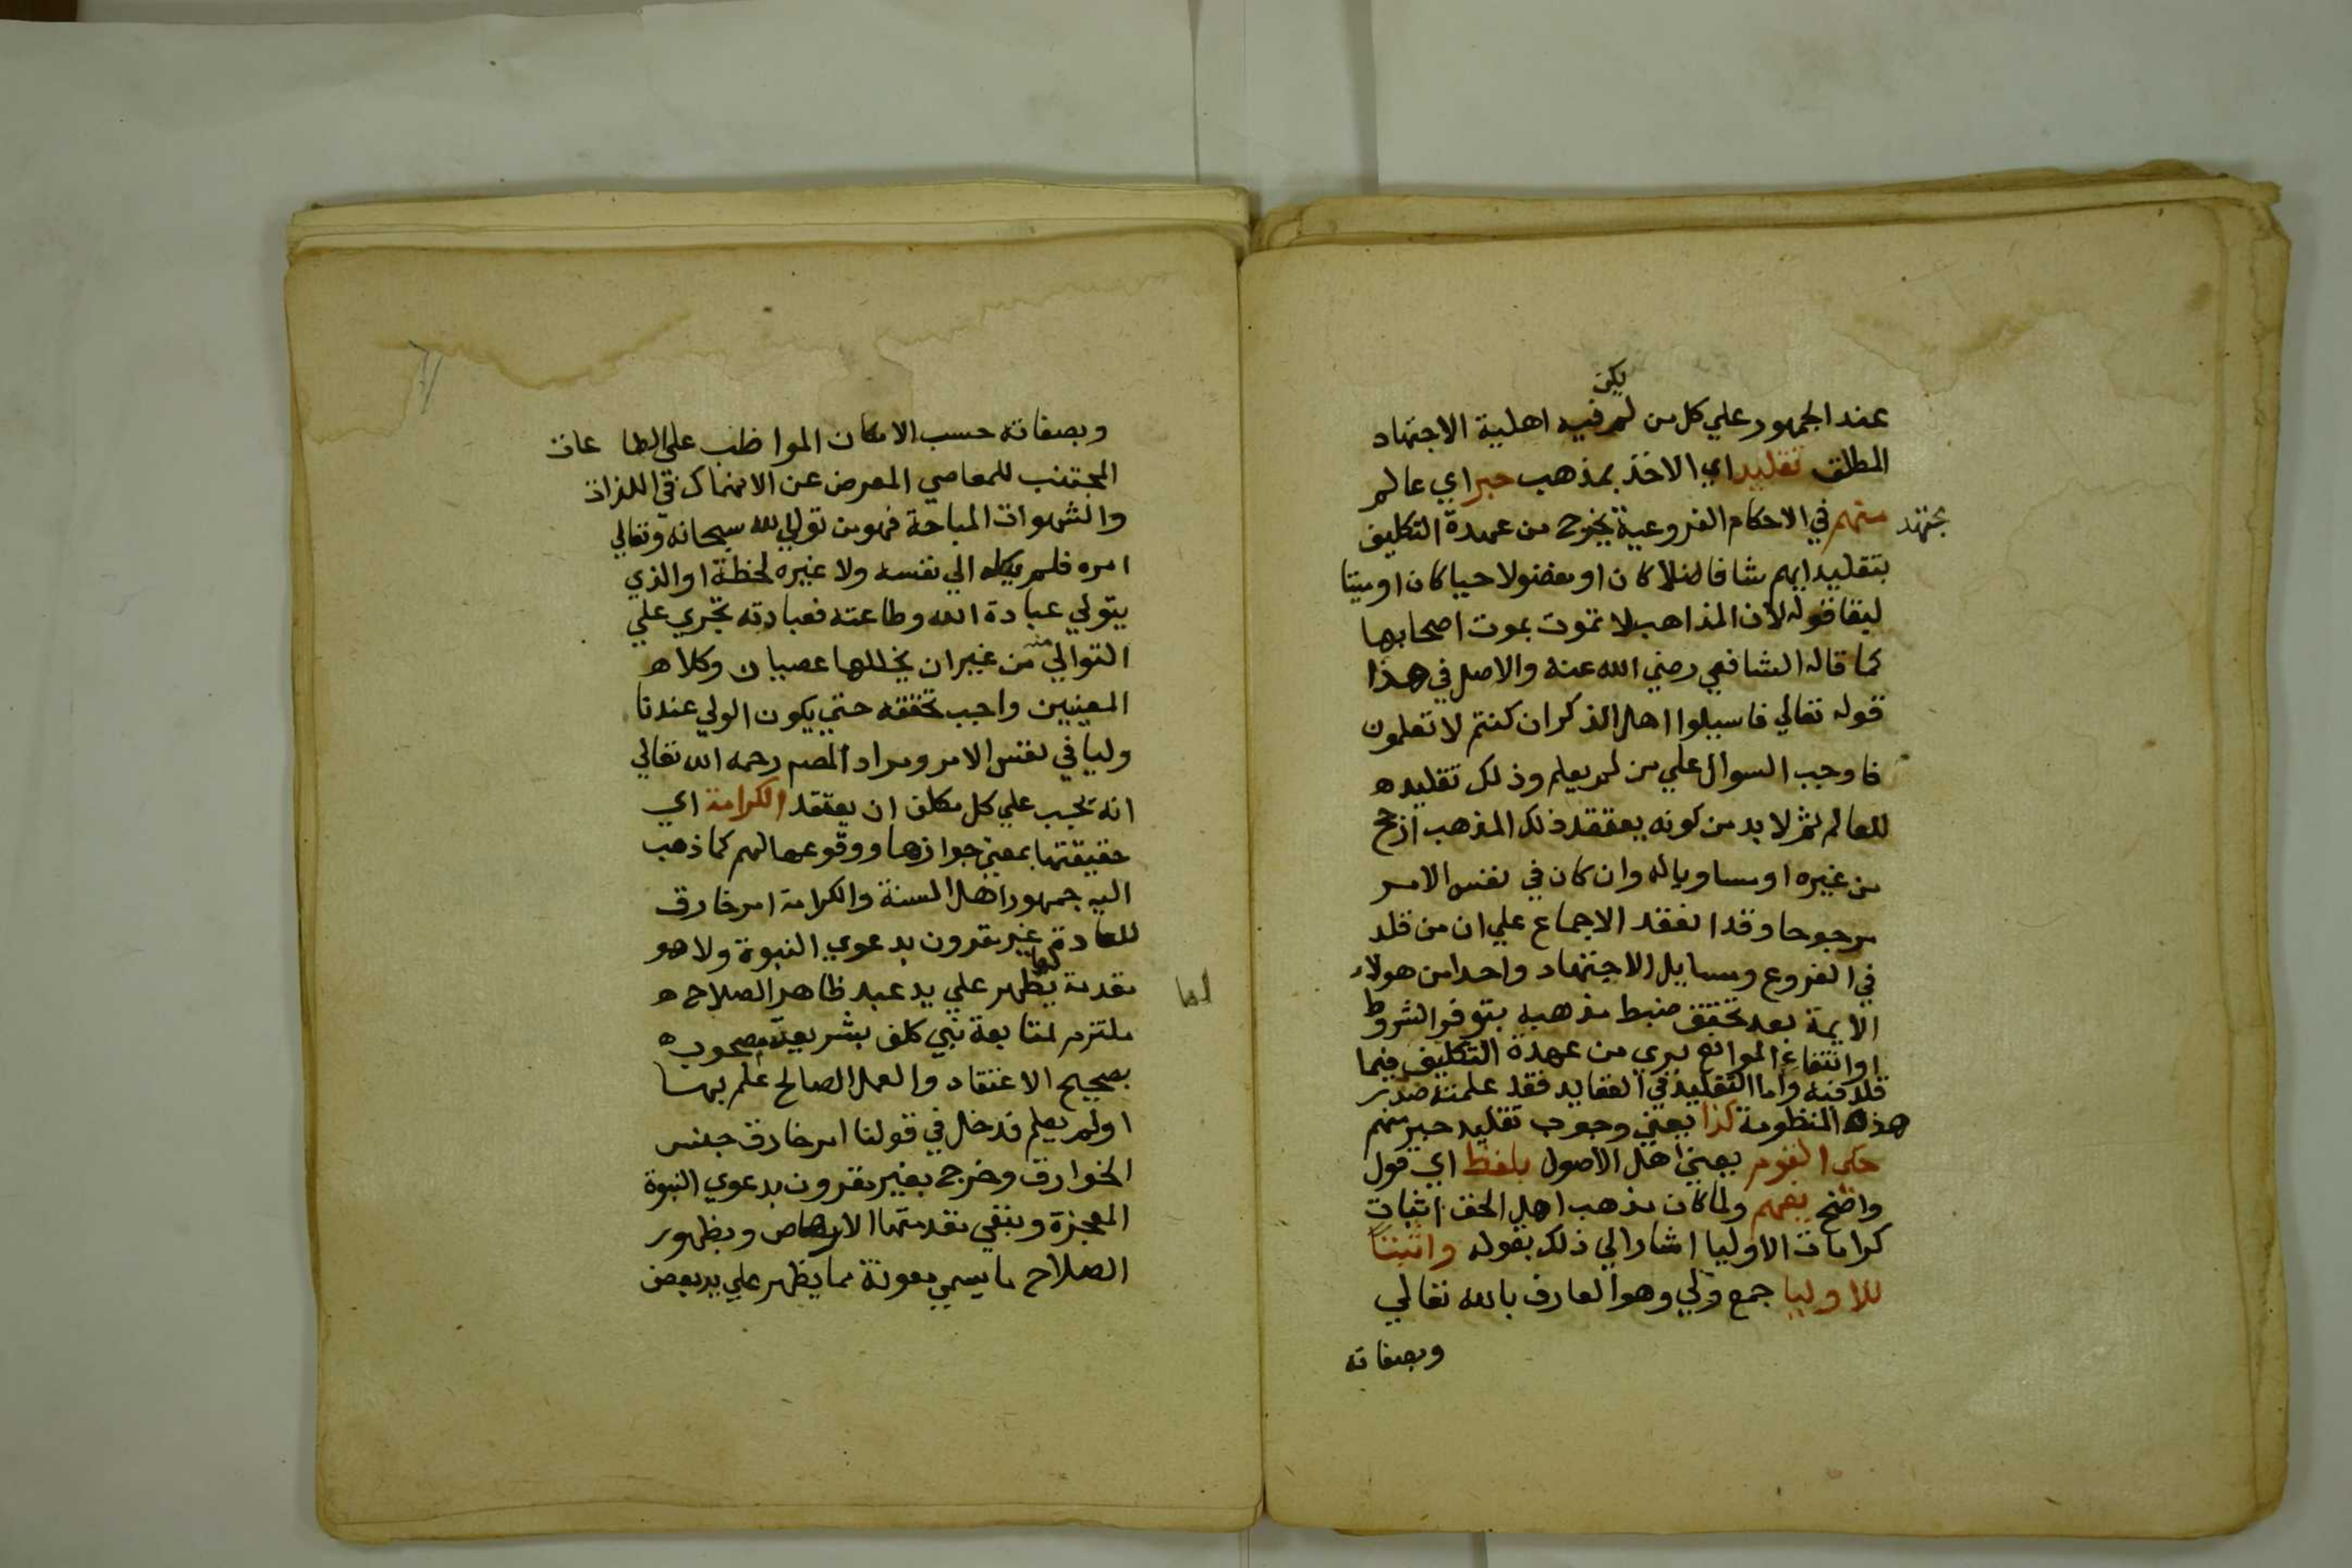 يكن
عند الجمهور علي كل من لم فيه اهلية الاجتهاد
المطلق تقليد اي الاخذ بمذهب حبر اي عالم
مجتهد
منهم في الاحكام الفروعية يخرج من عهدة التكليف
بتقليد ايهم شا فاضلا كان او مفضولا حيا كان او ميتا
لبقا قوله لان المذاهب لا تموت بموت اصحابها
كما قاله الشافعي رضي الله عنه والاصل في هذا
قوله تعالي فاسيلوا اهل الذكر ان كنتم لا تعلمون
فاوجب السوال علي من لم يعلم وذلك تقليده
للعالم ثم لا بد من كونه يعتقد ذلك المذهب ارجح
من غيره او مساويا له وان كان في نفس الامر
مرجوحا وقد انعقد الاجماع علي ان من قلد
في الفروع ومسايل الاجتهاد واحدا من هولاء
الايمة بعد تحقق ضبط مذهبه بتوفر الشروط
اوانتفاء الموانع بري من عهدة التكليف فيما
قلد فيه واما التقليد في العقايد فقد علمته صدر
هذه المنظومة كذا يعني وجوب تقليد حبر منهم
حكي القوم يعني اهل الاصول بلفظ اي قول
واضح يفهم ولما كان مذهب اهل الحق اثبات
كرامات الاوليا اشار الي ذلك بقوله واثبتن
للاوليا جمع ولي وهو العارف بالله تعالي
وبصفاته
وبصفاته حسب الامكان المواظب علي الطاعات
المجتنب للمعاصي المعرض عن الانهماك في اللذات
والشهوات المباحة فهو من تولي الله سبحانه وتعالي
امره فلم يكله الي نفسه ولا غيره لحظة او الذي
يتولي عبادة الله وطاعته فعبادته تجري علي
التوالي من غير ان يخللها عصيان وكلا
المعنيين واجب تحققه حتي يكون الولي عندنا
وليا في نفس الامر ومراد المصم رحمه الله تعالي
انه يجب علي كل مكلف ان يعتقد الكرامة اي
حقيقتها بمعني جوازها ووقوعها لهم كما ذهب
اليه جمهور اهل السنة والكرامة امر خارق
للعادة غير مقرون بدعوي النبوة ولا هو
مقدمة لها يظهر علي يد عبد ظاهر الصلاح
لها
ملتزم لمتابعة نبي كلف بشريعته مصحوب
بصحيح الاعتقاد والعمل الصالح علم بها
اولم يعلم فدخل في قولنا امر خارق جنس
الخوارق وخرج بغير مقرون بدعوي النبوة
المعجزة وبنفي مقدمتها الارهاص وبظهور
الصلاح ما يسمي معونة مما يظهر علي يد بعض